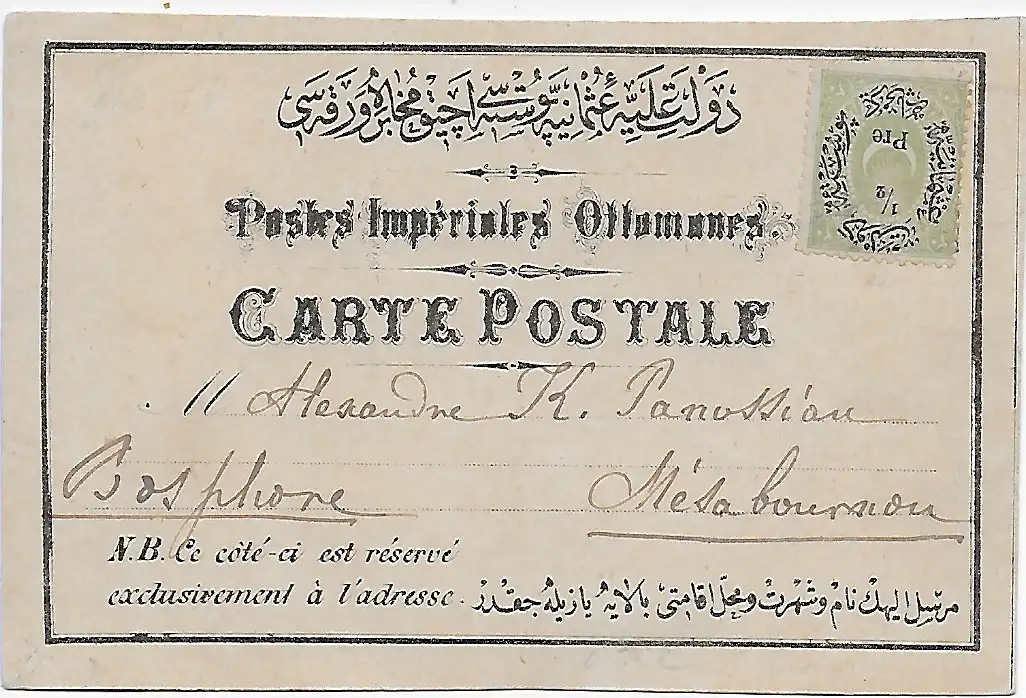 دولت علیهٔ عثمانیه پوسته سی آچیق مخابره ورقه سی
Postes Impériales Ottomanes
CARTE POSTALE
Pre
1/2
Alexandre K. Panossian
Bosphore Mésabournou
N.B. Ce côté-ci est réservé
exclusivement à l'adresse.
مرسل الیهك نام و شهرت و محل اقامتی بالایه یازیله جقدر